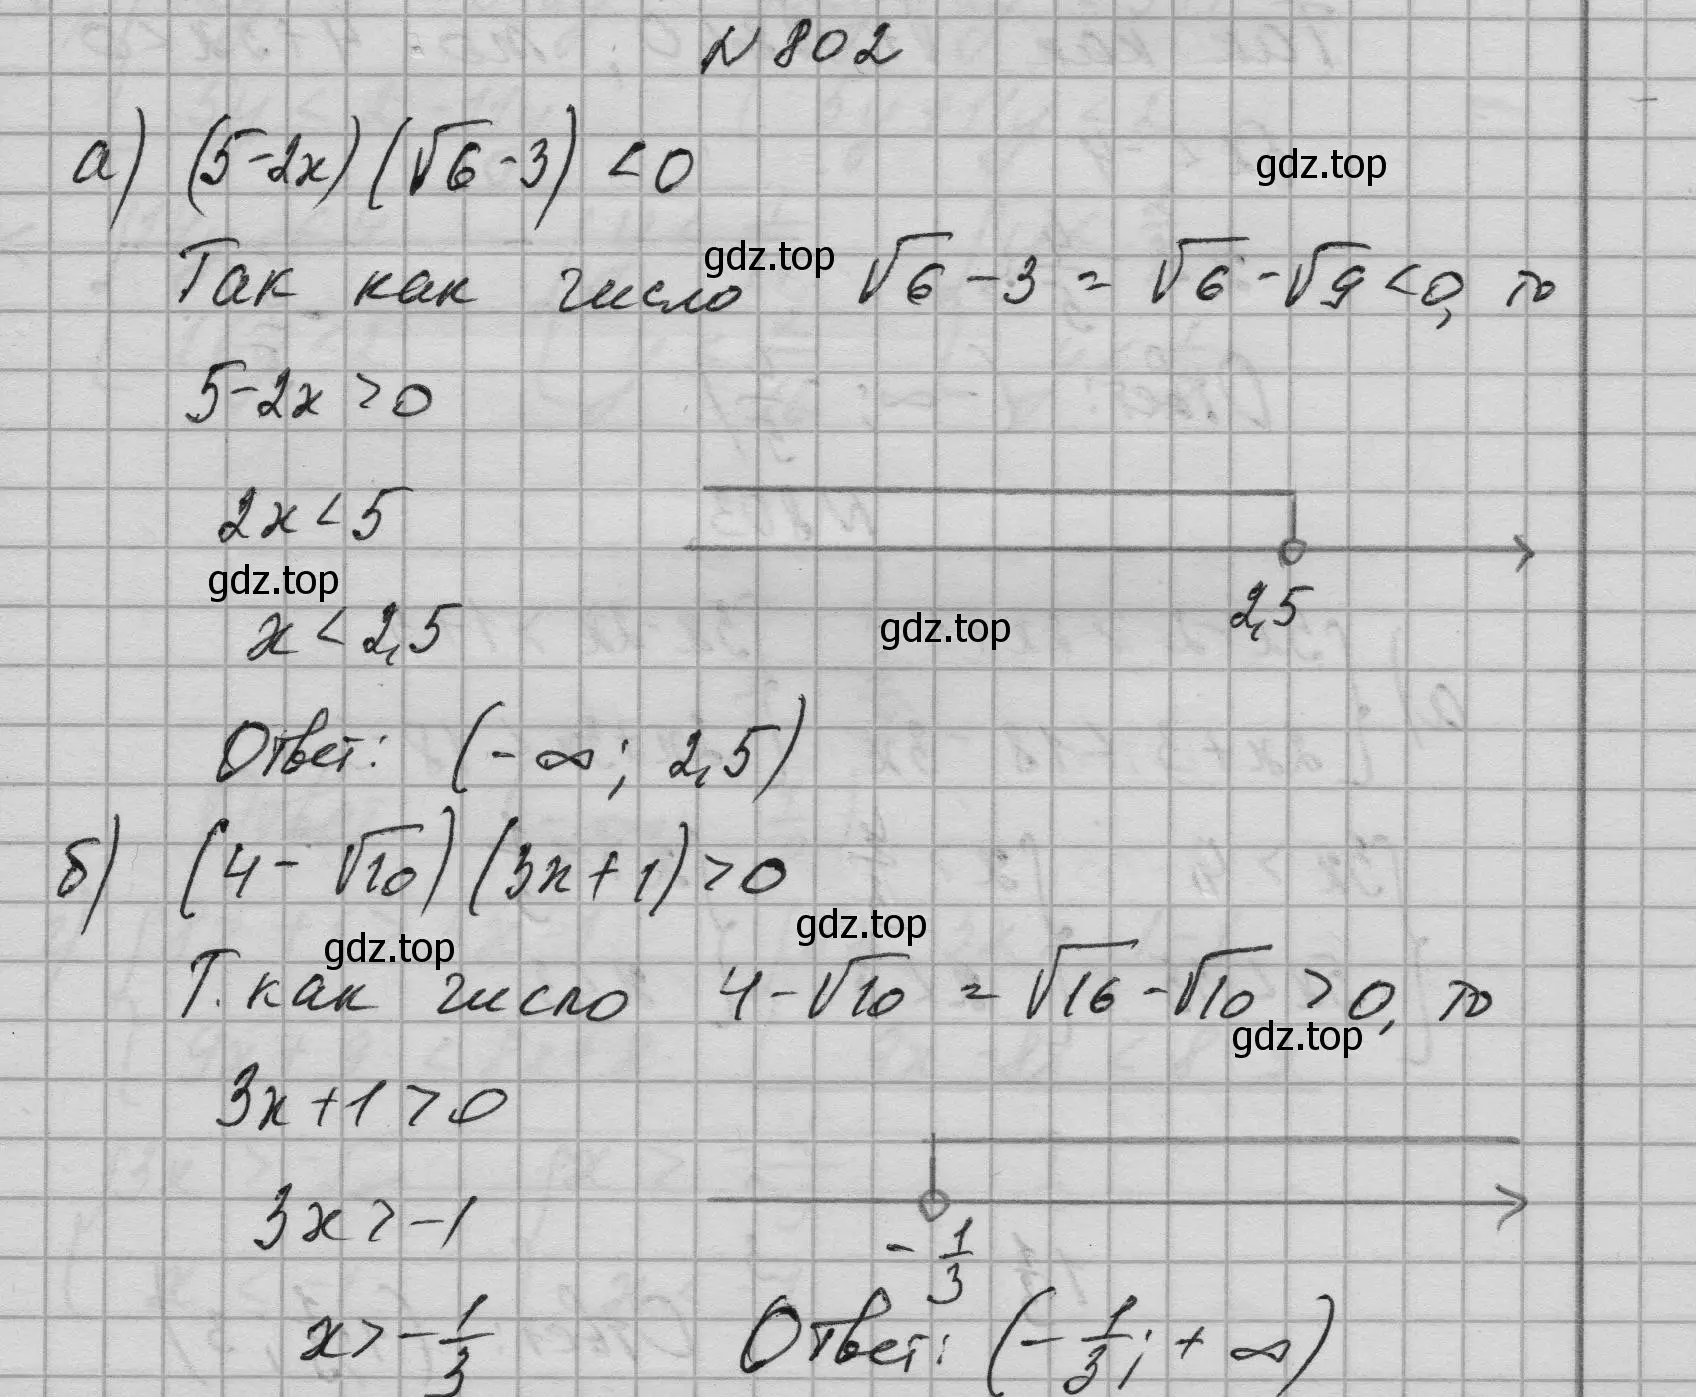 N 802
а) (5-2x)(√6-3) <0
gdz.top
Так как число √6-3=√6-√9<0, то
gdz.top
5-2x>0
2x<5
gdz.top
2,5
x<2,5
gdz.top
Ответ: (-∞; 2,5)
б) (4-√10)(3x+1)>0
gdz.top
gdz.top
Т. как число 4-√10=√16-√10>0, то
gdz.top
3x+1>0
3x>-1
-1/3
x>-1/3 Ответ: (-1/3; +∞)